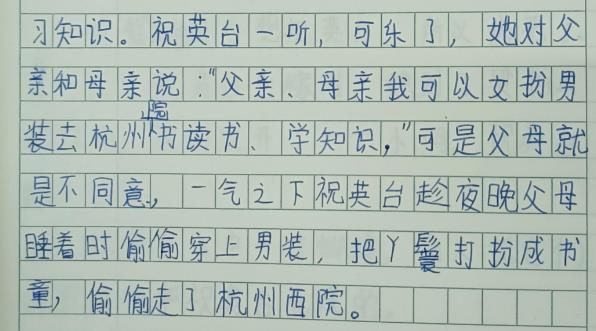 习知识。祝英台一听，可乐了，她对父
亲和母亲说：“父亲、母亲我可以女扮男
装去杭州书院读书、学知识，”可是父母就
是不同意，一气之下祝英台趁夜晚父母
睡着时偷偷穿上男装，把丫鬟打扮成书
童，偷偷走了杭州西院。